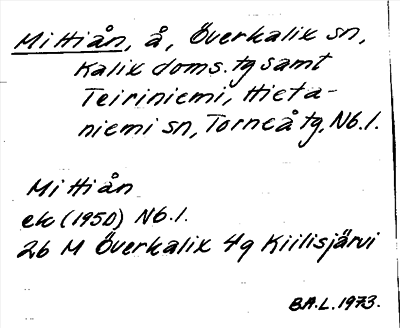 Mittiån, å, Överkalix sn,
Kalix doms. tg samt
Teiriniemi, Hieta-
niemi sn, Torneå tg, Nb. l.
Mittiån
ek (1950) Nb. l.
26 M Överkalix 4g Kiilisjärvi
B.A.L. 1973.